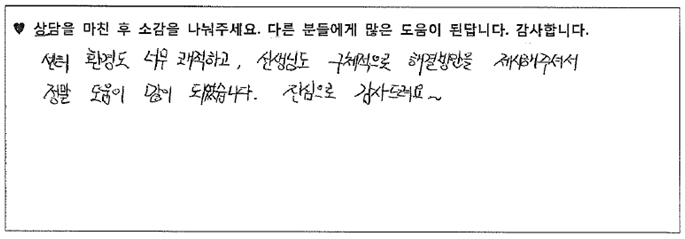 ♥ 상담을 마친 후 소감을 나눠주세요. 다른 분들에게 많은 도움이 된답니다. 감사합니다.
센터 환경도 너무 쾌적하고, 선생님도 구체적으로 해결방안을 제시해주셔서
정말 도움이 많이 되었습니다. 진심으로 감사드려요~